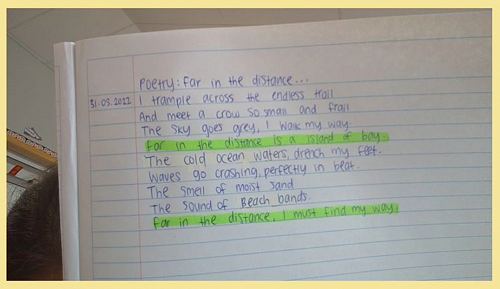 Poetry: Far in the distance...
31.03.2022 I trample across the endless trail
And meet a crow so small and frail
The sky goes grey, I walk my way.
Far in the distance is a island of bay.
The cold ocean waters, drench my feet.
Waves go crashing, perfectly in beat.
The smell of moist sand
The sound of Beach bands.
Far in the distance, I must find my way.